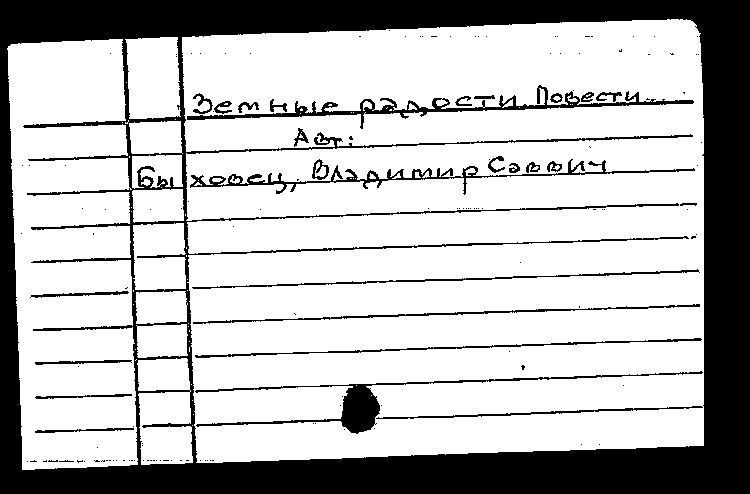 Земные радости. Повести.
Авт:
Быховец, Владимир Саввич